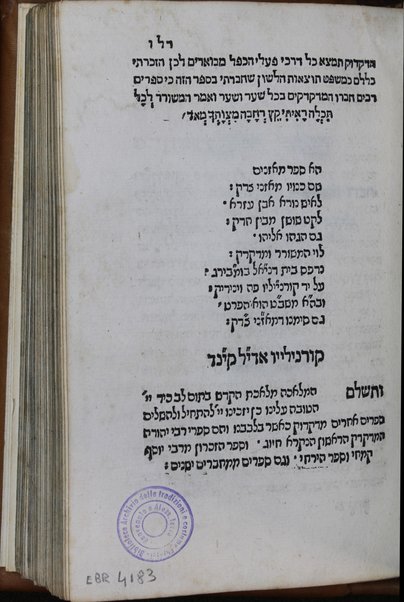 רלו
הדקדוק תמצא כל דרכי פעלי הכפל מבוארים לכן הזכרתי
כללם כמשפט תוצאות הלשון שחברתי בספר הזה כי ספרים
רבים חברו המדקדקים בכל שער ושער ואמר המשורר לְכָל
תִּכְלָה רָאִיתִי קֵץ רְחָבָה מִצְוָתְךָ מְאֹד׳
הא ספר מאזנים
גם כנויו מאזני צדק׃
לאיש נורא אבן עזרא׃
לקט שושן מבין חדק׃
גם הגהו אליהו׃
לוי המשורר ומדקדק׃
נדפס בית דניאל בומבירג׃
על יד קורנייליו פה וינידיק׃
ובה״א משב״ט הוא הפרט׃
גם סימנו דמאזני צדק׃
קורנילייו אדי״ל קי״נד
ותשלם המלאכה מלאכת הקדש בתוס לב כיד יי״
הטובה עלינו כן יזכינו יי״ להתחיל ולהשלים
ספרים אחרים מדקדוק כאשר בלבבנו והם ספרי רבי יהודה
המדקדק הראשון הנקרא חיוג׳ וספר הזכרון מרבי יוסף
קמחי וספר הירחי׳ וגם ספרים ממחברים ישנים׃
Biblioteca Archivio delle tradizioni e
EBR 4183